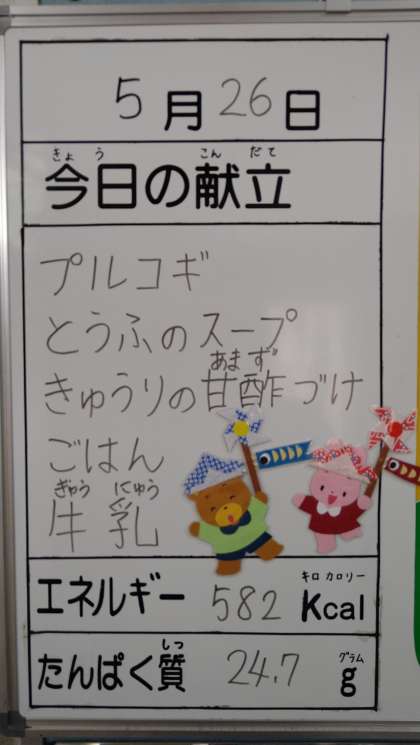 5月26日
きょう こんだて
今日の献立
プルコギ
とうふのスープ
あまず
きゅうりの甘酢づけ
ごはん
ぎゅう にゅう
牛乳
キロ カロリー
エネルギー 582 Kcal
しつ グラム
たんぱく質 24.7 g